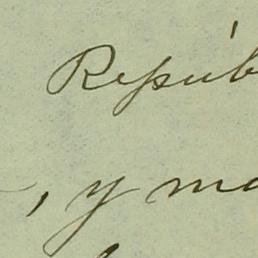 Repúb
, y ma